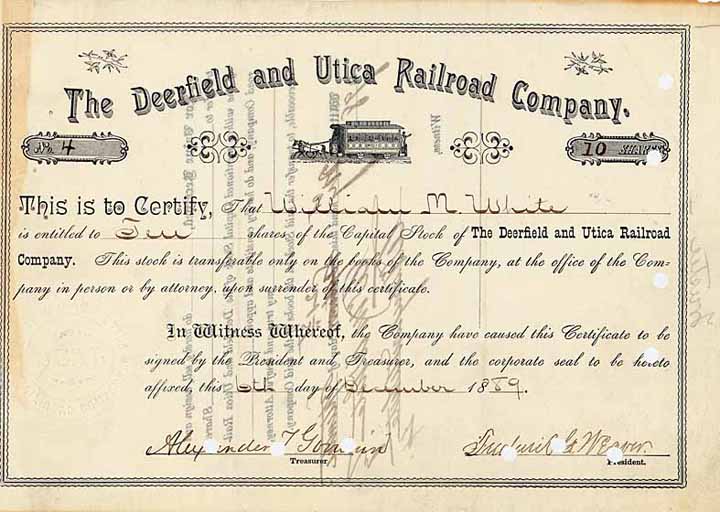 The Deerfield and Utica Railroad Company.
No. 4
10 SHARES
This is to Certify, That William M. White
is entitled to Ten shares of the Capital Stock of The Deerfield and Utica Railroad
Company. This stock is transferable only on the books of the Company, at the office of the Com-
pany in person or by attorney, upon surrender of this certificate.
In Witness Whereof, the Company have caused this Certificate to be
signed by the President and Treasurer, and the corporate seal to be hereto
affixed, this 6th day of December 1889.
Alexander T
Treasurer
Frederick G Weaver
President.